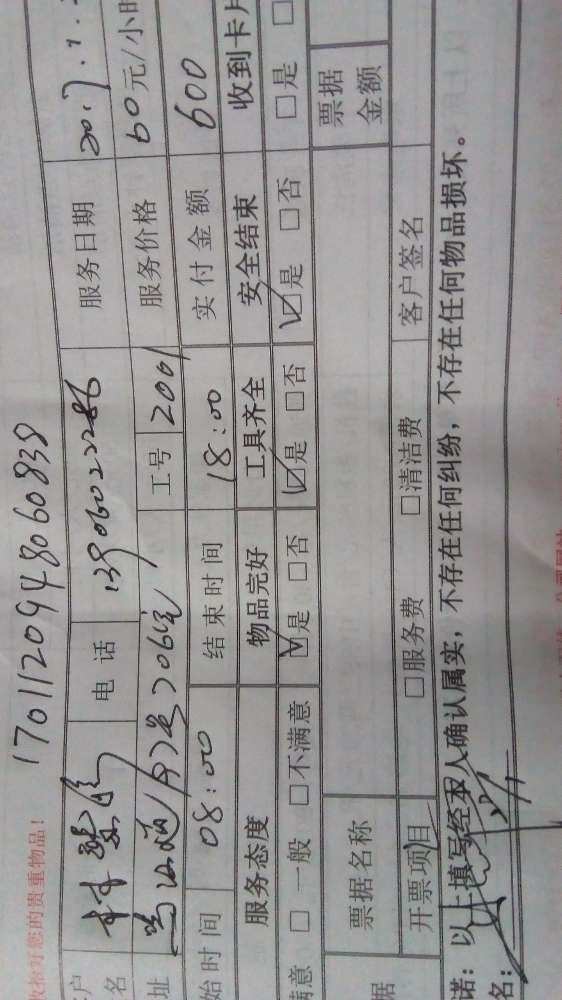 收拾好您的贵重物品！
1701120948060838
户名 电话 13906022286 服务日期 2017.1.
址 工号 2001 服务价格 60元/小时
始时间 08:00 结束时间 18:00 实付金额 600
服务态度 物品完好 工具齐全 安全结束 收到卡片
满意 □一般 □不满意 ☑是 □否 ☑是 □否 ☑是 □否 □是
票据名称 票据金额
据 开票项目 □服务费 □清洁费 客户签名
诺：以上填写经本人确认属实，不存在任何纠纷，不存在任何物品损坏。
名：